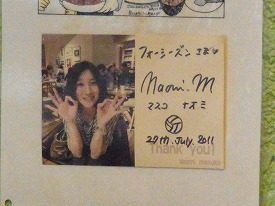 フォーシーズン さま
Naomi.M
マスコ ナオミ
29th.July.2011
Thank you!